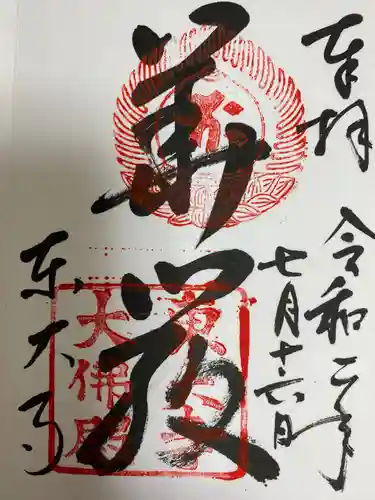 奉拝
令和二年
七月十六日
華嚴
東大寺
東大寺
大佛殿